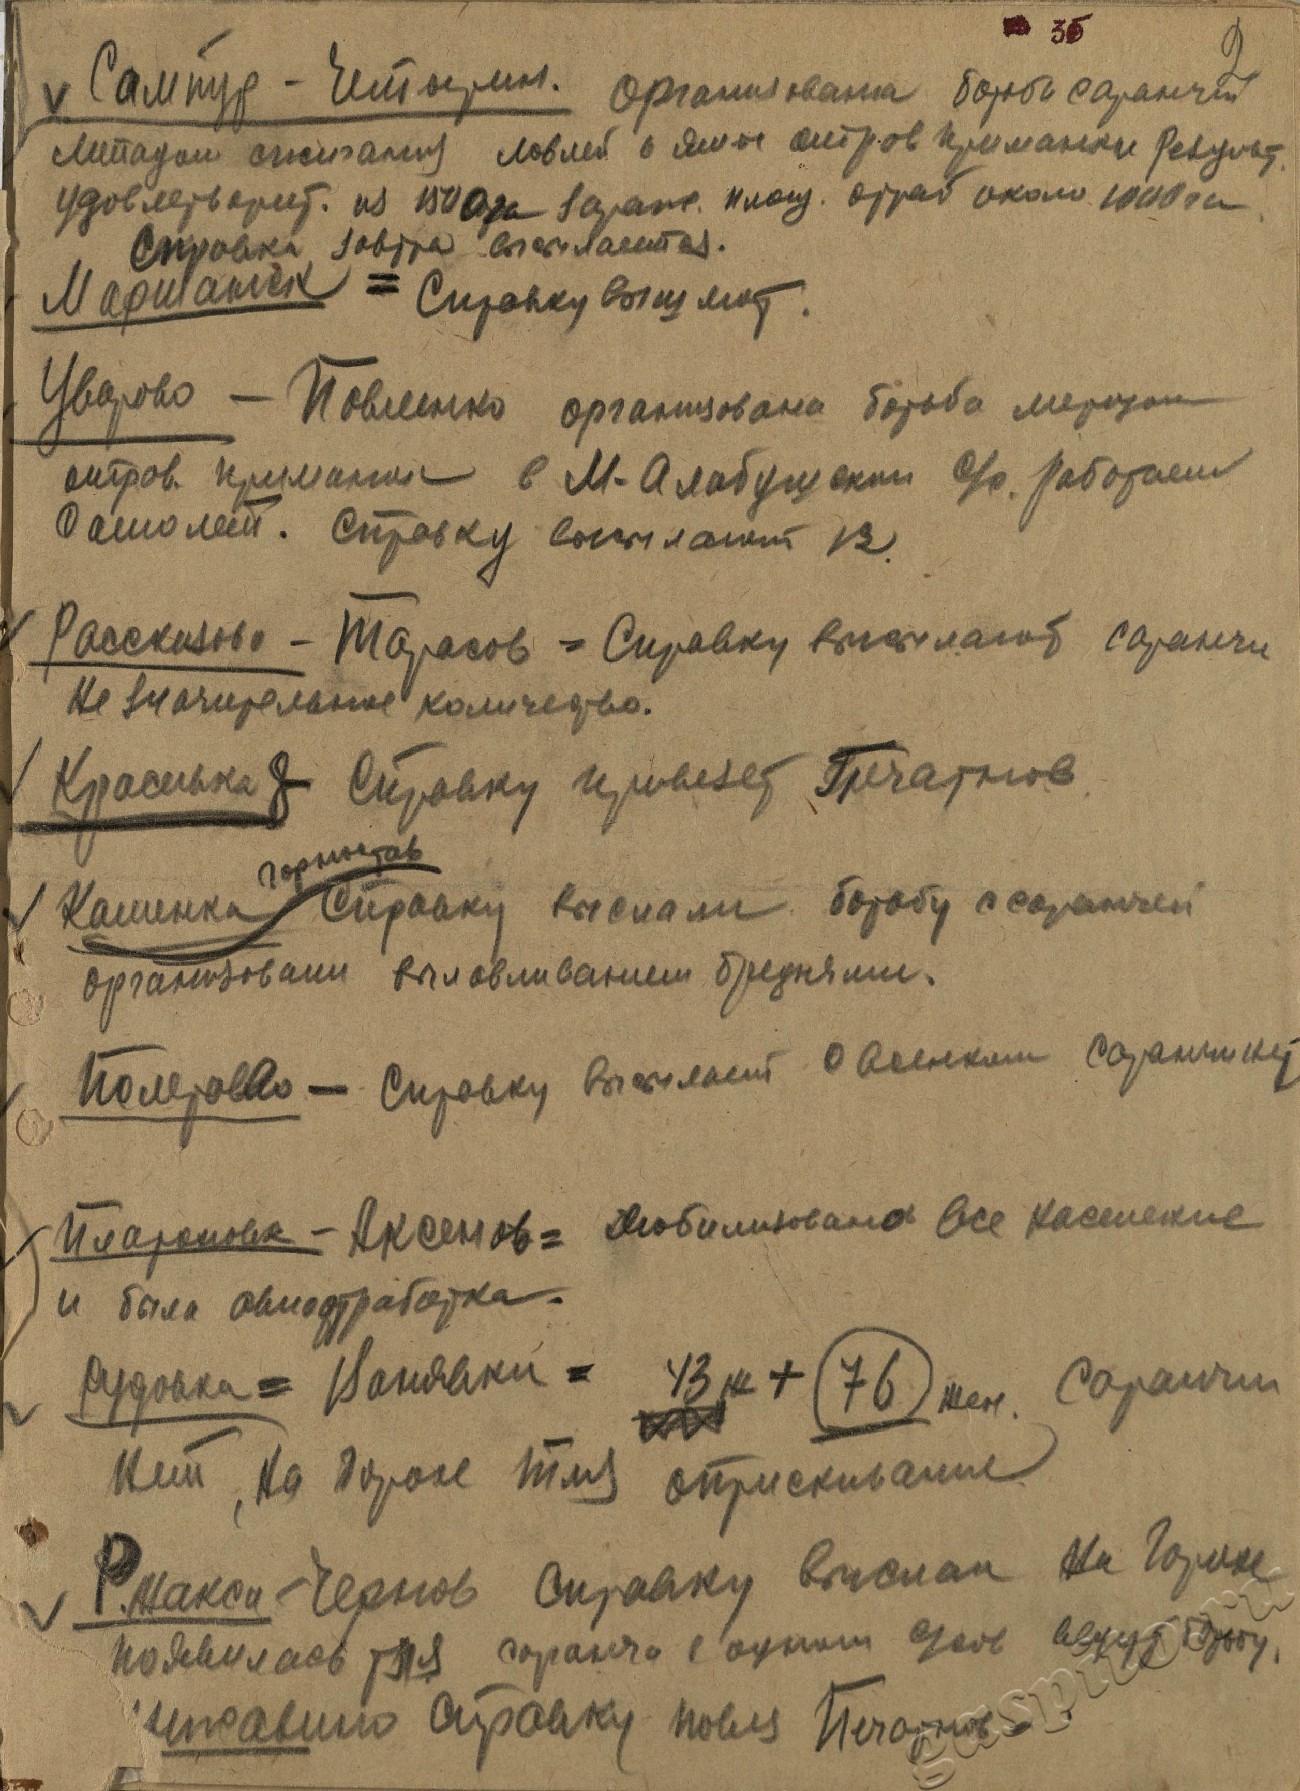 35
2
Сампур - Четырин. Организована борьба саранчей
методом сжигания ловлей в ямы отров приманки Результ.
удовлетворит. из 1500 га зараж. площ. отраб около 1000 га.
Справка завтра высылается.
Моршанск = Справку вышлют.
Уварово - Павленко организована борьба методом
отров. приманки в М-Алабушском с/с. работает
самолет. Справку высылают 12.
Рассказово - Тарасов = Справку высылают саранчи
не значительное количество.
Красивка Справку привезет Печатнов
Каменка Горностаев Справку выслали борьбу с саранчей
организовали вылавливанием бреднями.
Полетаево - Справку высылает саранчи нет
Платоновка - Аксенов = мобилизовано все население
и была авиаотработка.
Рудовка = Ванявкин = 43 м + 76 жен. Саранчи
нет, на горохе тля опрыскивание
Р.накса - Чернов Справку выслал На Горохе
появилась тля саранча в одном с/сов ведут борьбу.
Справку Печатнов
gaspito.ru